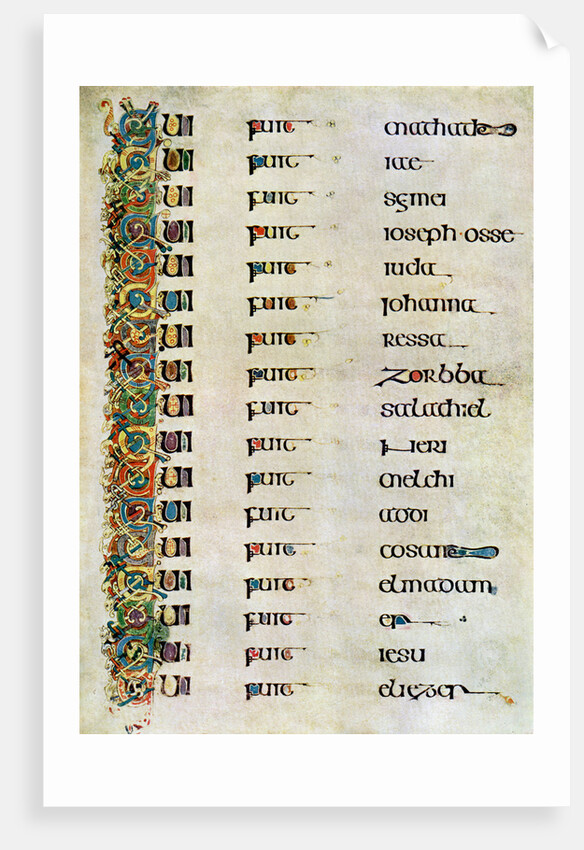 QUI fuit mathath
QUI fuit iae
QUI fuit semei
QUI fuit ioseph osse
QUI fuit iuda
QUI fuit iohanna
QUI fuit ressa
QUI fuit zorbba
QUI fuit salathiel
QUI fuit neri
QUI fuit melchi
QUI fuit addi
QUI fuit cosum
QUI fuit elmadam
QUI fuit er
QUI fuit iesu
QUI fuit eliezer